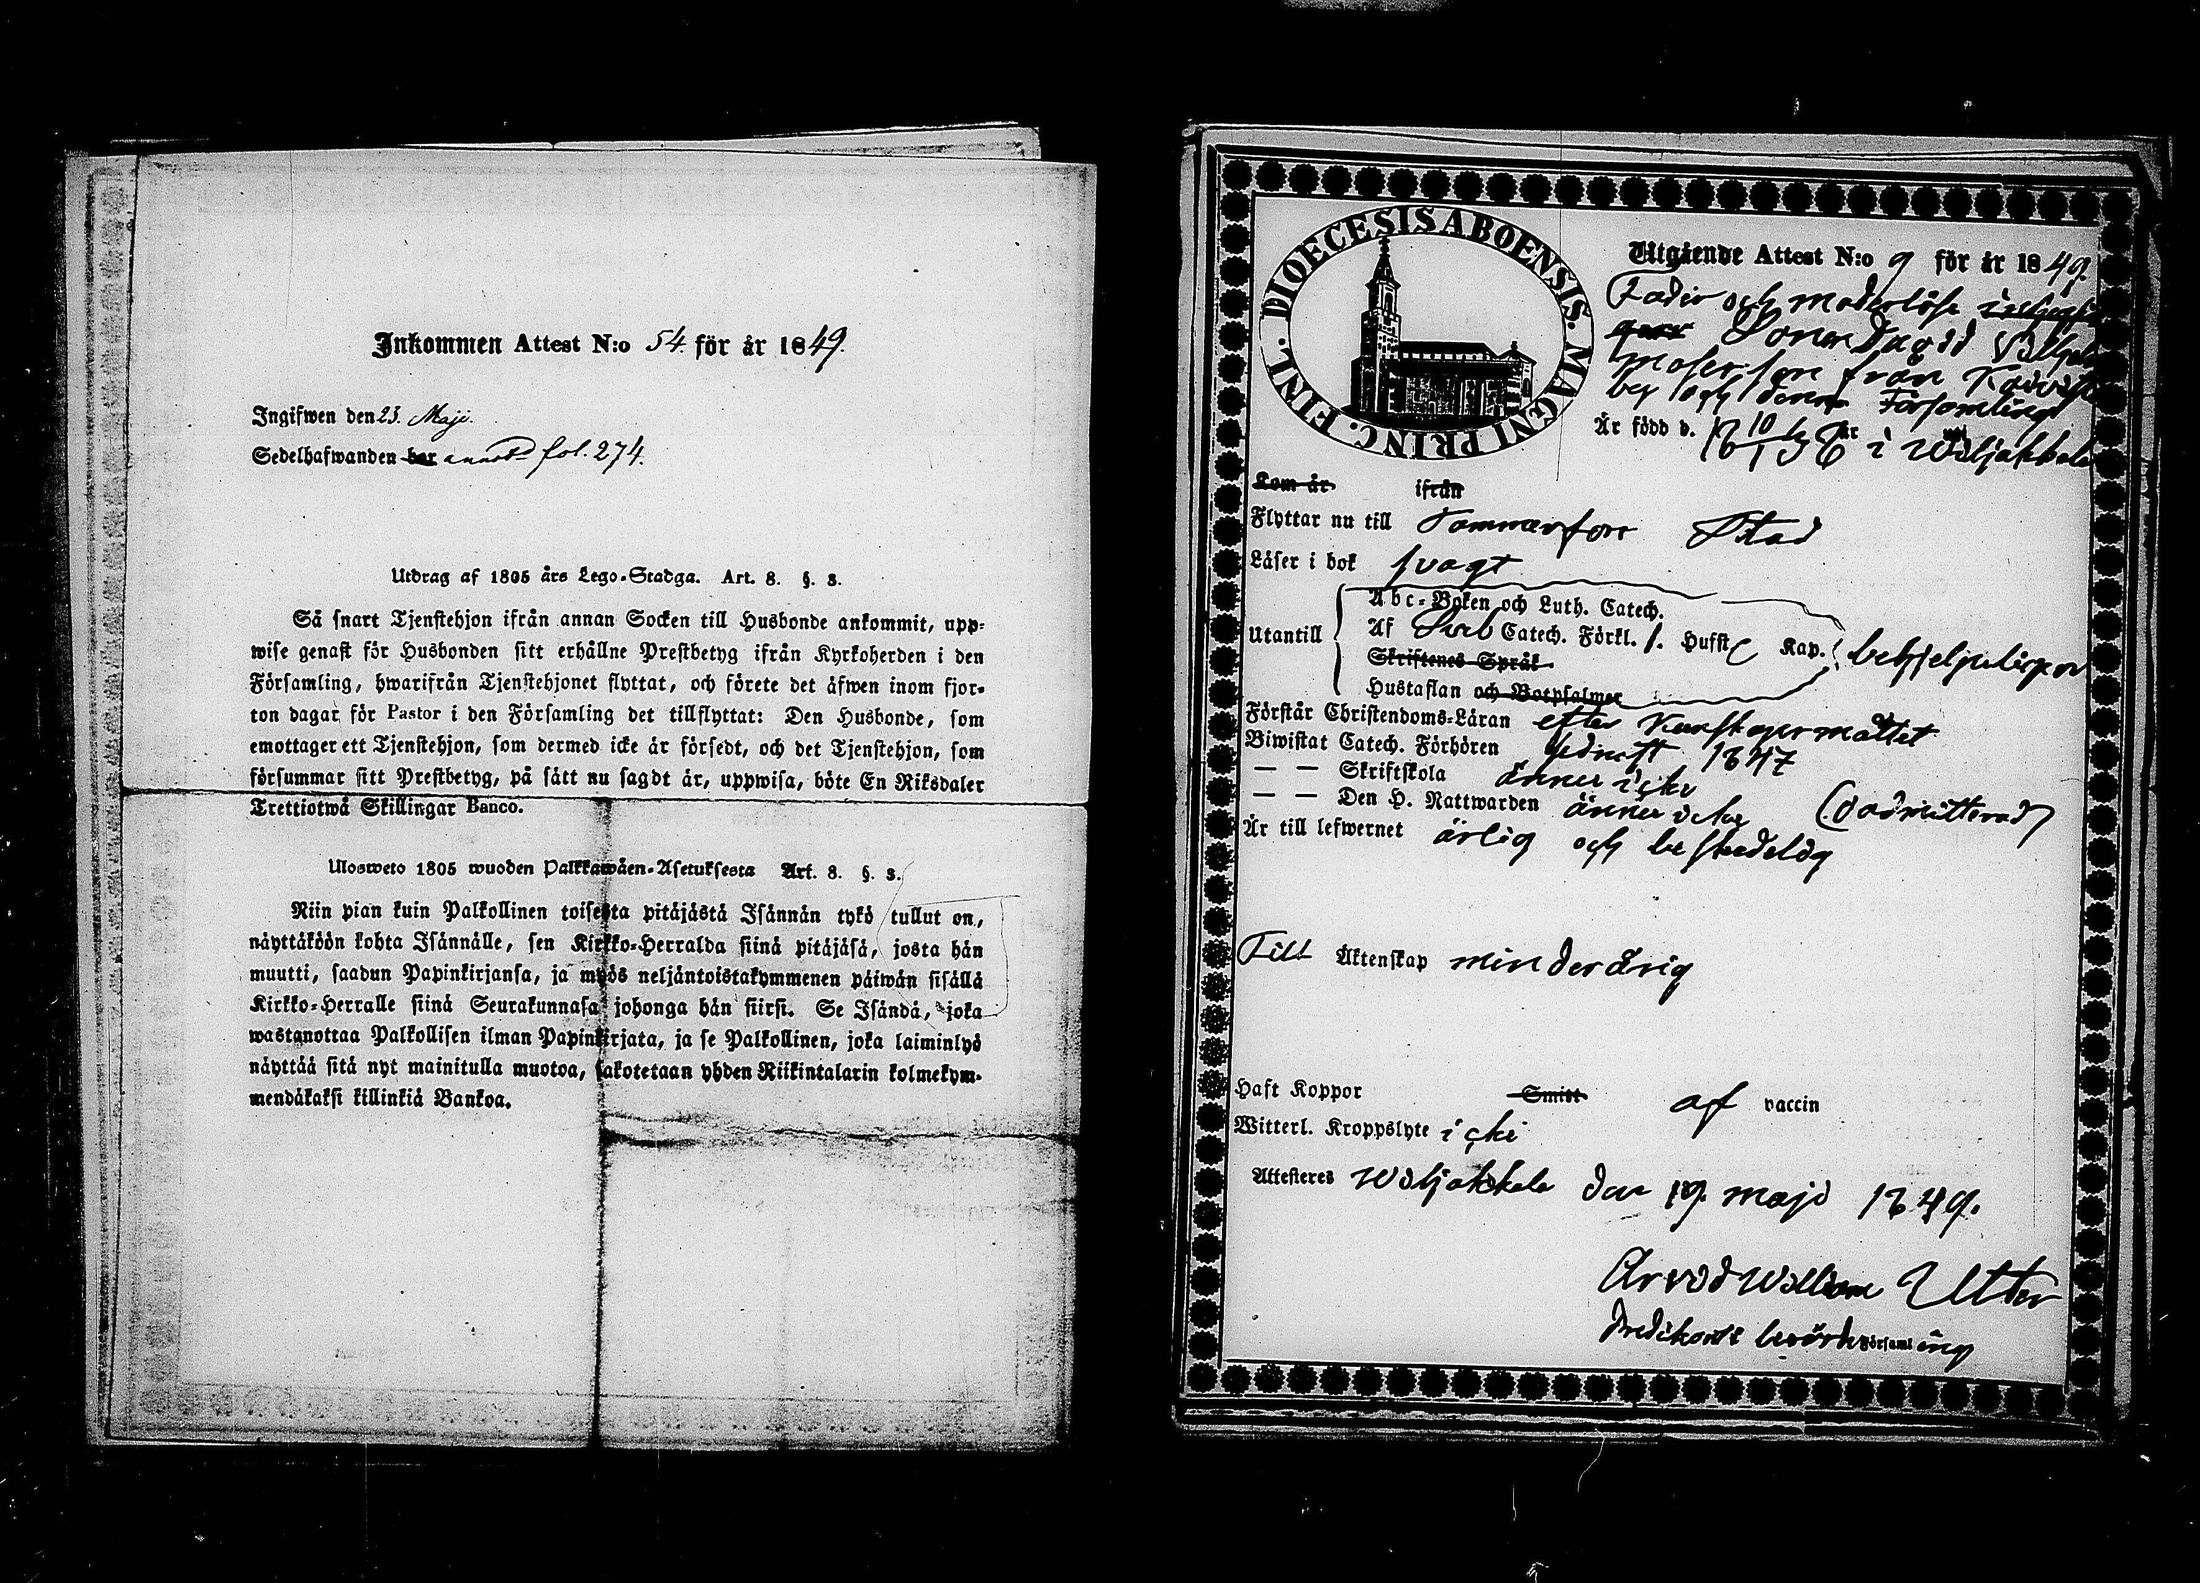 Inkommen Attest N:o 54. för år 1849.
Ingifwen den 23. Maji.
Sedelhafwanden har annot. fol. 274.
Utdrag af 1805 års Lego-Stadga. Art. 8. §. 3.
Så snart Tjenstehjon ifrån annan Socken till Husbonde ankommit, upp-
wise genast för Husbonden sitt erhållne Prestbetyg ifrån Kyrkoherden i den
Församling, hwarifrån Tjenstehjonet flyttat, och förete det äfwen inom fjor-
ton dagar för Pastor i den Församling det tillflyttat: Den Husbonde, som
emottager ett Tjenstehjon, som dermed icke är försedt, och det Tjenstehjon, som
försummar sitt Prestbetyg, på sätt nu sagdt är, uppwisa, böte En Riksdaler
Trettiotwå Skillingar Banco.
Ulosweto 1805 wuoden Palkkawäen-Asetuksesta Art. 8. §. 3.
Niin pian kuin Palkollinen toisesta pitäjästä Isännän tykö tullut on,
näyttäköön kohta Isännälle, sen Kirkko-Herralda siinä pitäjäsä, josta hän
muutti, saadun Papinkirjansa, ja myös neljäntoistakymmenen päiwän sisällä
Kirkko-Herralle siinä Seurakunnasa johonga hän siirsi. Se Isändä, joka
wastanottaa Palkollisen ilman Papinkirjata, ja se Palkollinen, joka laiminlyö
näyttää sitä nyt mainitulla muotoa, sakotetaan yhden Riikintalarin kolmekym-
mendäkaksi killinkiä Bankoa.
DIOECESIS ABOENSIS. MAGNI PRINC. FINL.
Utgående Attest N:o 9 för år 1849.
Fader och moderlöse
Sonen David Vilhelm
från
by och denna Församling
Är född d. i Wiljakkala
Kom år ifrån
Flyttar nu till Tammerfors Stad
Läser i bok svagt
Utantill
Abc-Boken och Luth. Catech.
Af Sveb Catech. Förkl. 1. Hufst Kap.
Skriftenes Språk
behjelpligen
Hustaflan och Botpsalmer
Förstår Christendoms-Läran efter kunskapsmåttet
Biwistat Catech. Förhören sednast 1847
— — Skriftskola ännu icke
— — Den H. Nattwarden ännu icke (oadmitterad)
Är till lefwernet ärlig och beskedelig
Till Äktenskap minderårig
Haft Koppor Smitt af vaccin
Witterl. Kroppslyte icke
Attesteras Wiljakkala den 19. maji 1849.
Arvid William Utter
Predikant i berörde Församling